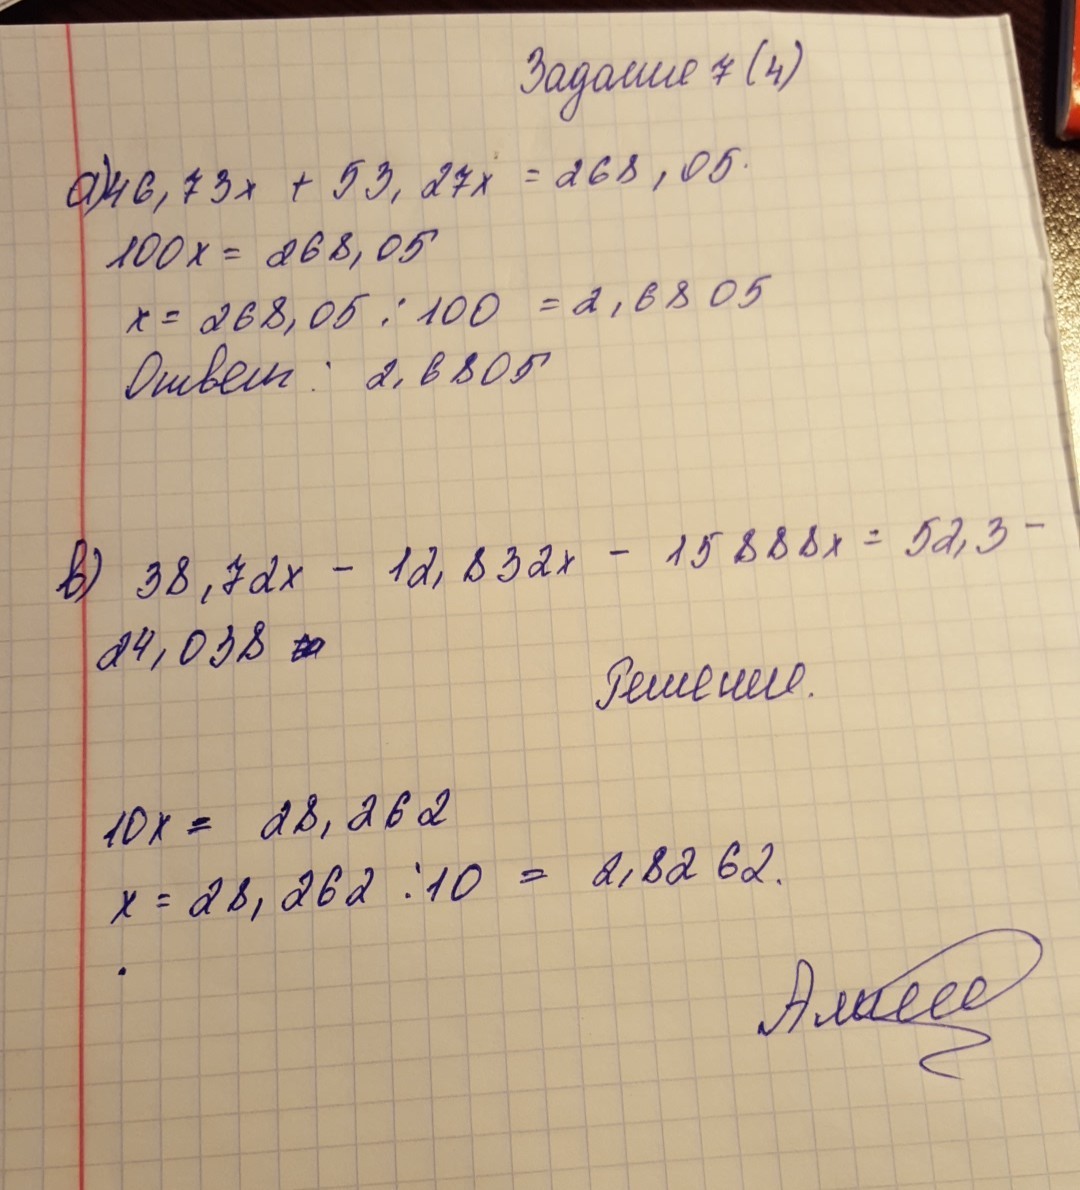 Задание 7 (4)
а) 46,73х + 53,27х = 268,05.
100х = 268,05
х = 268,05 : 100 = 2,6805
Ответ: 2,6805
в) 38,72х - 12,832х - 15888х = 52,3 -
24,038
Решение.
10х = 28,262
х = 28,262 : 10 = 2,8262.